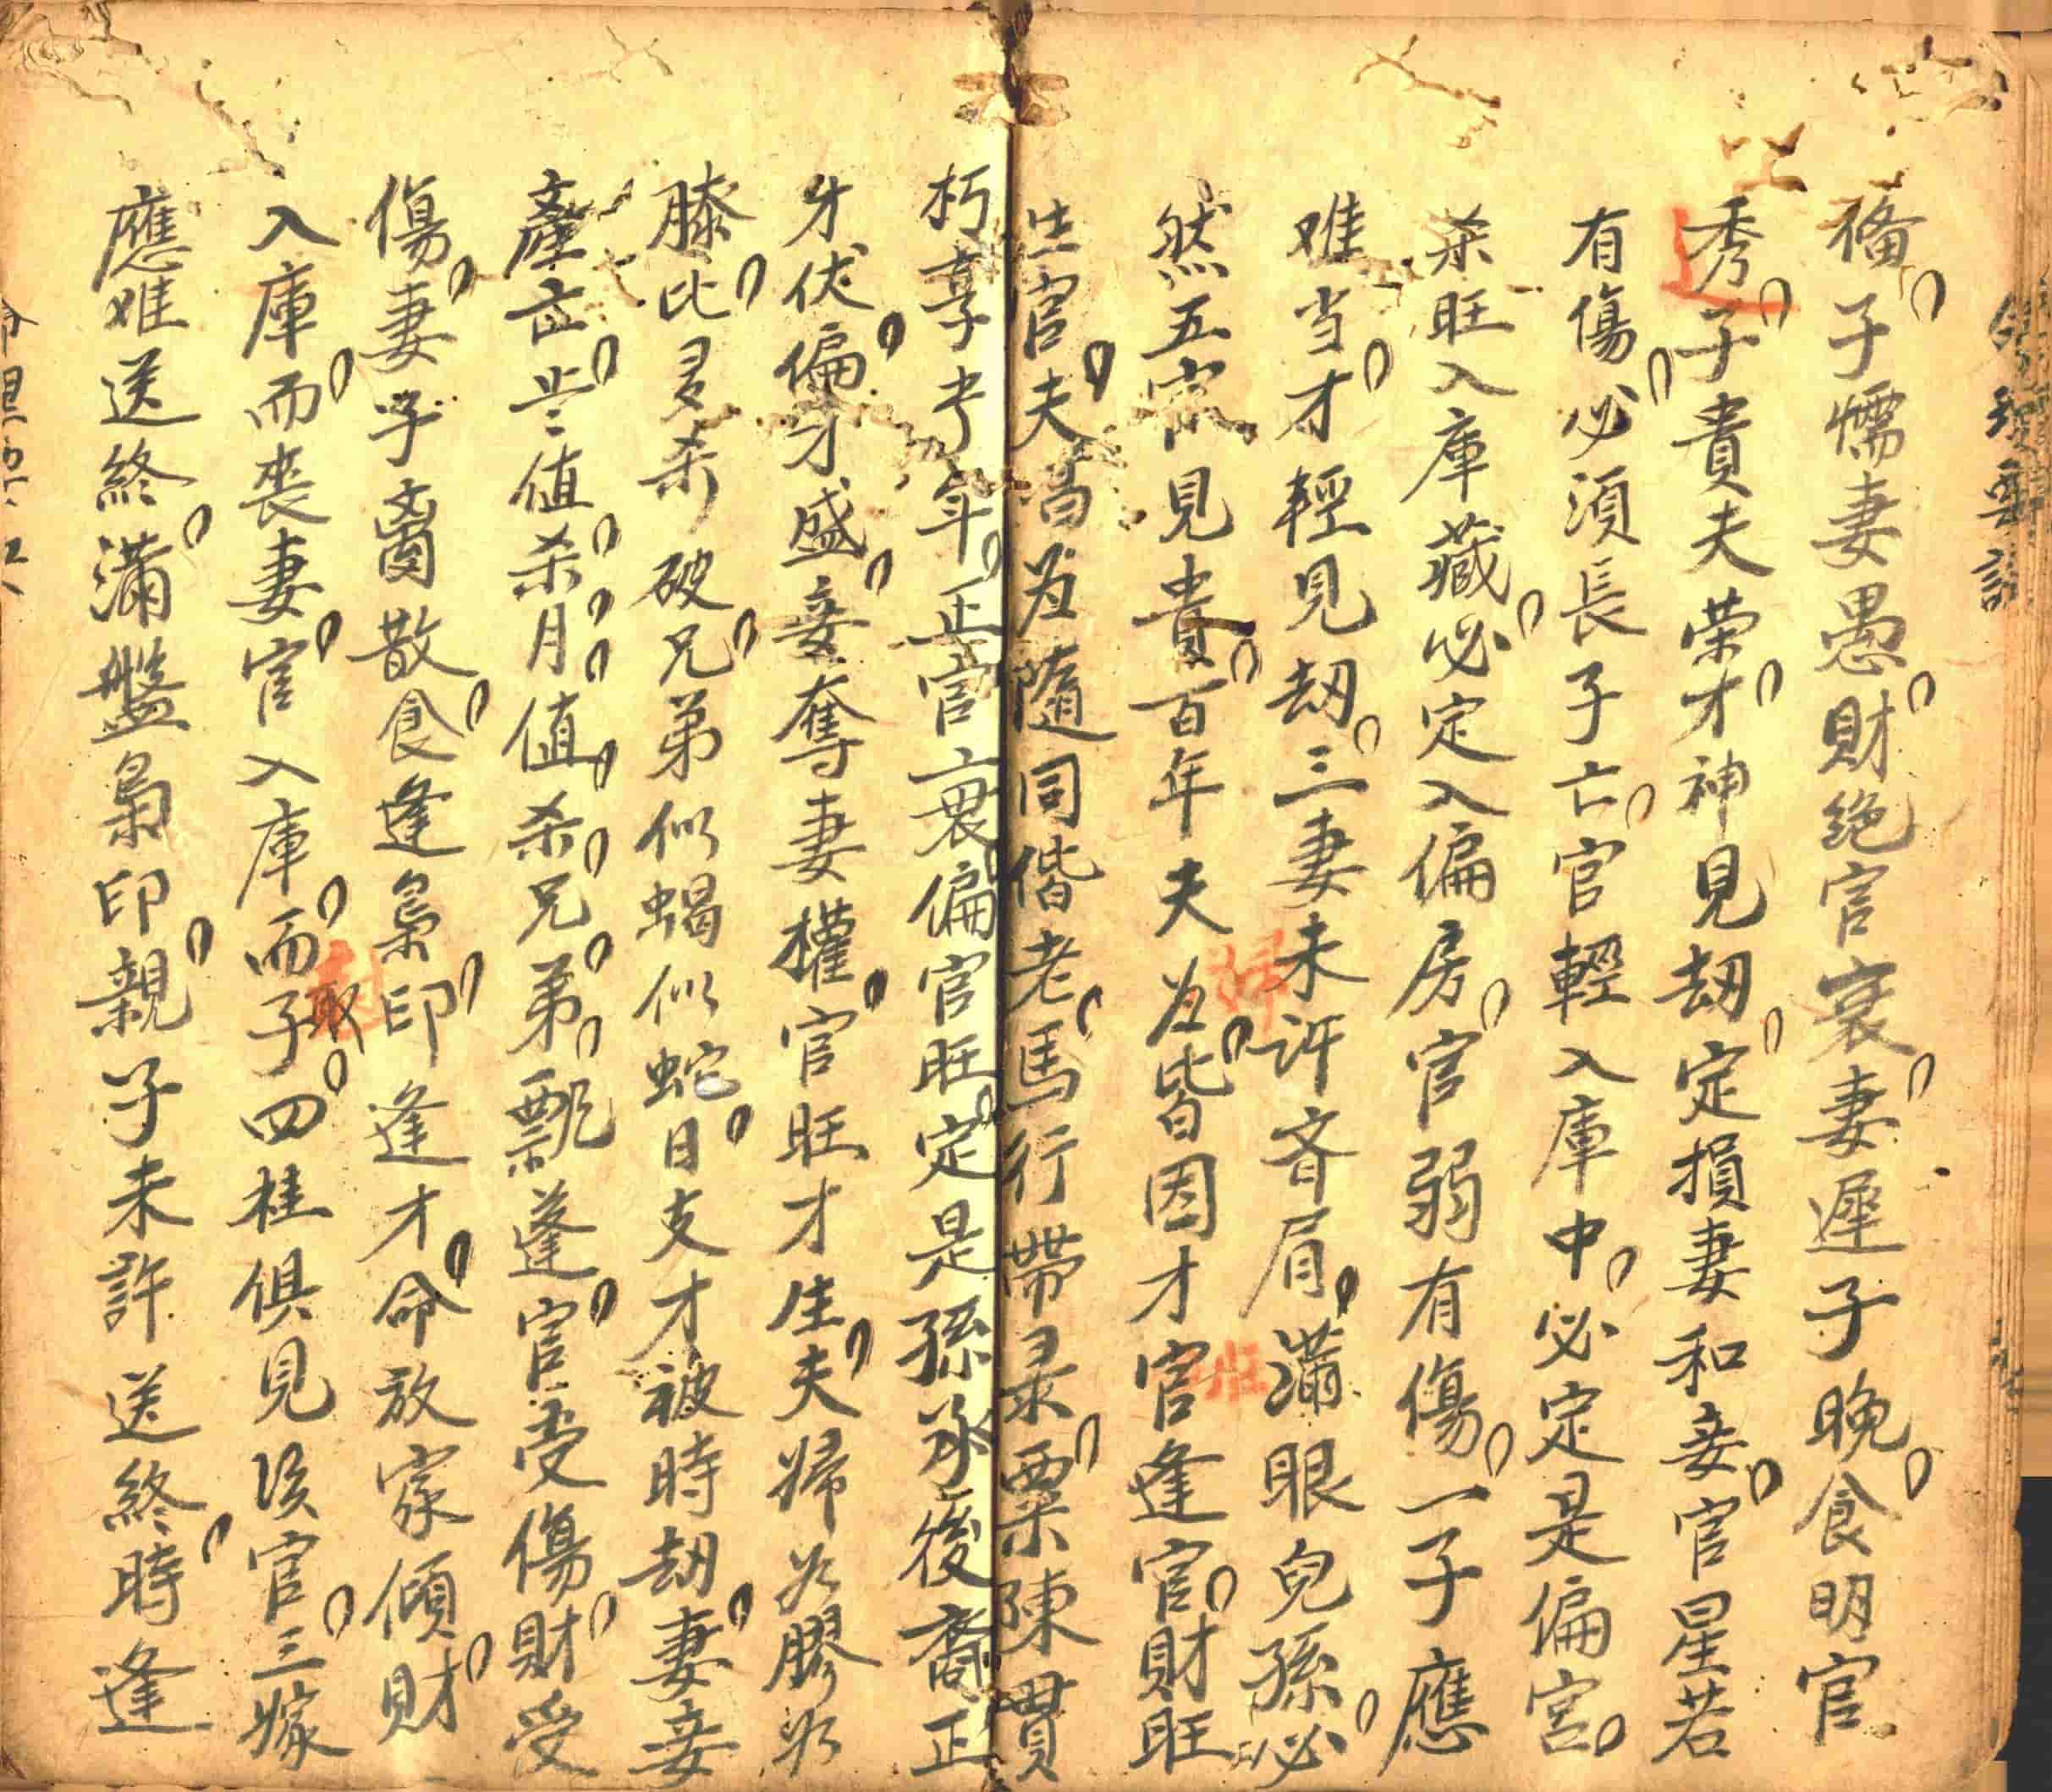 脩子懦妻愚財绝官衰妻遲子晚食明官
秀子貴夫荣才神見劫定損妻和妾官星若
有傷必須長子亡官輕入庫中必定是偏宫
杀旺入庫藏必定入偏房官弱有傷一子應
难当才輕見劫三妻未許斉眉满眼兒孫必
然五官見貴百年夫為皆因才官逢官財旺
生官夫為随同偕老馬行帶录粟陳貫
朽享年正官衰偏官旺定是孫承後裔正
牙伏偏才盛妾奪妻權官旺才生夫婦必膠必
膝比多杀破兄弟似蝎似蛇日支才被時劫妻妾
產亡岁值杀月值杀兄弟飄蓬官受傷財受
傷妻子啚散食逢梟印逢才命放家傾財
入庫而喪妻官入庫而子四桂俱見该官三嫁
應难送終满盤梟印親子未許送終時逢